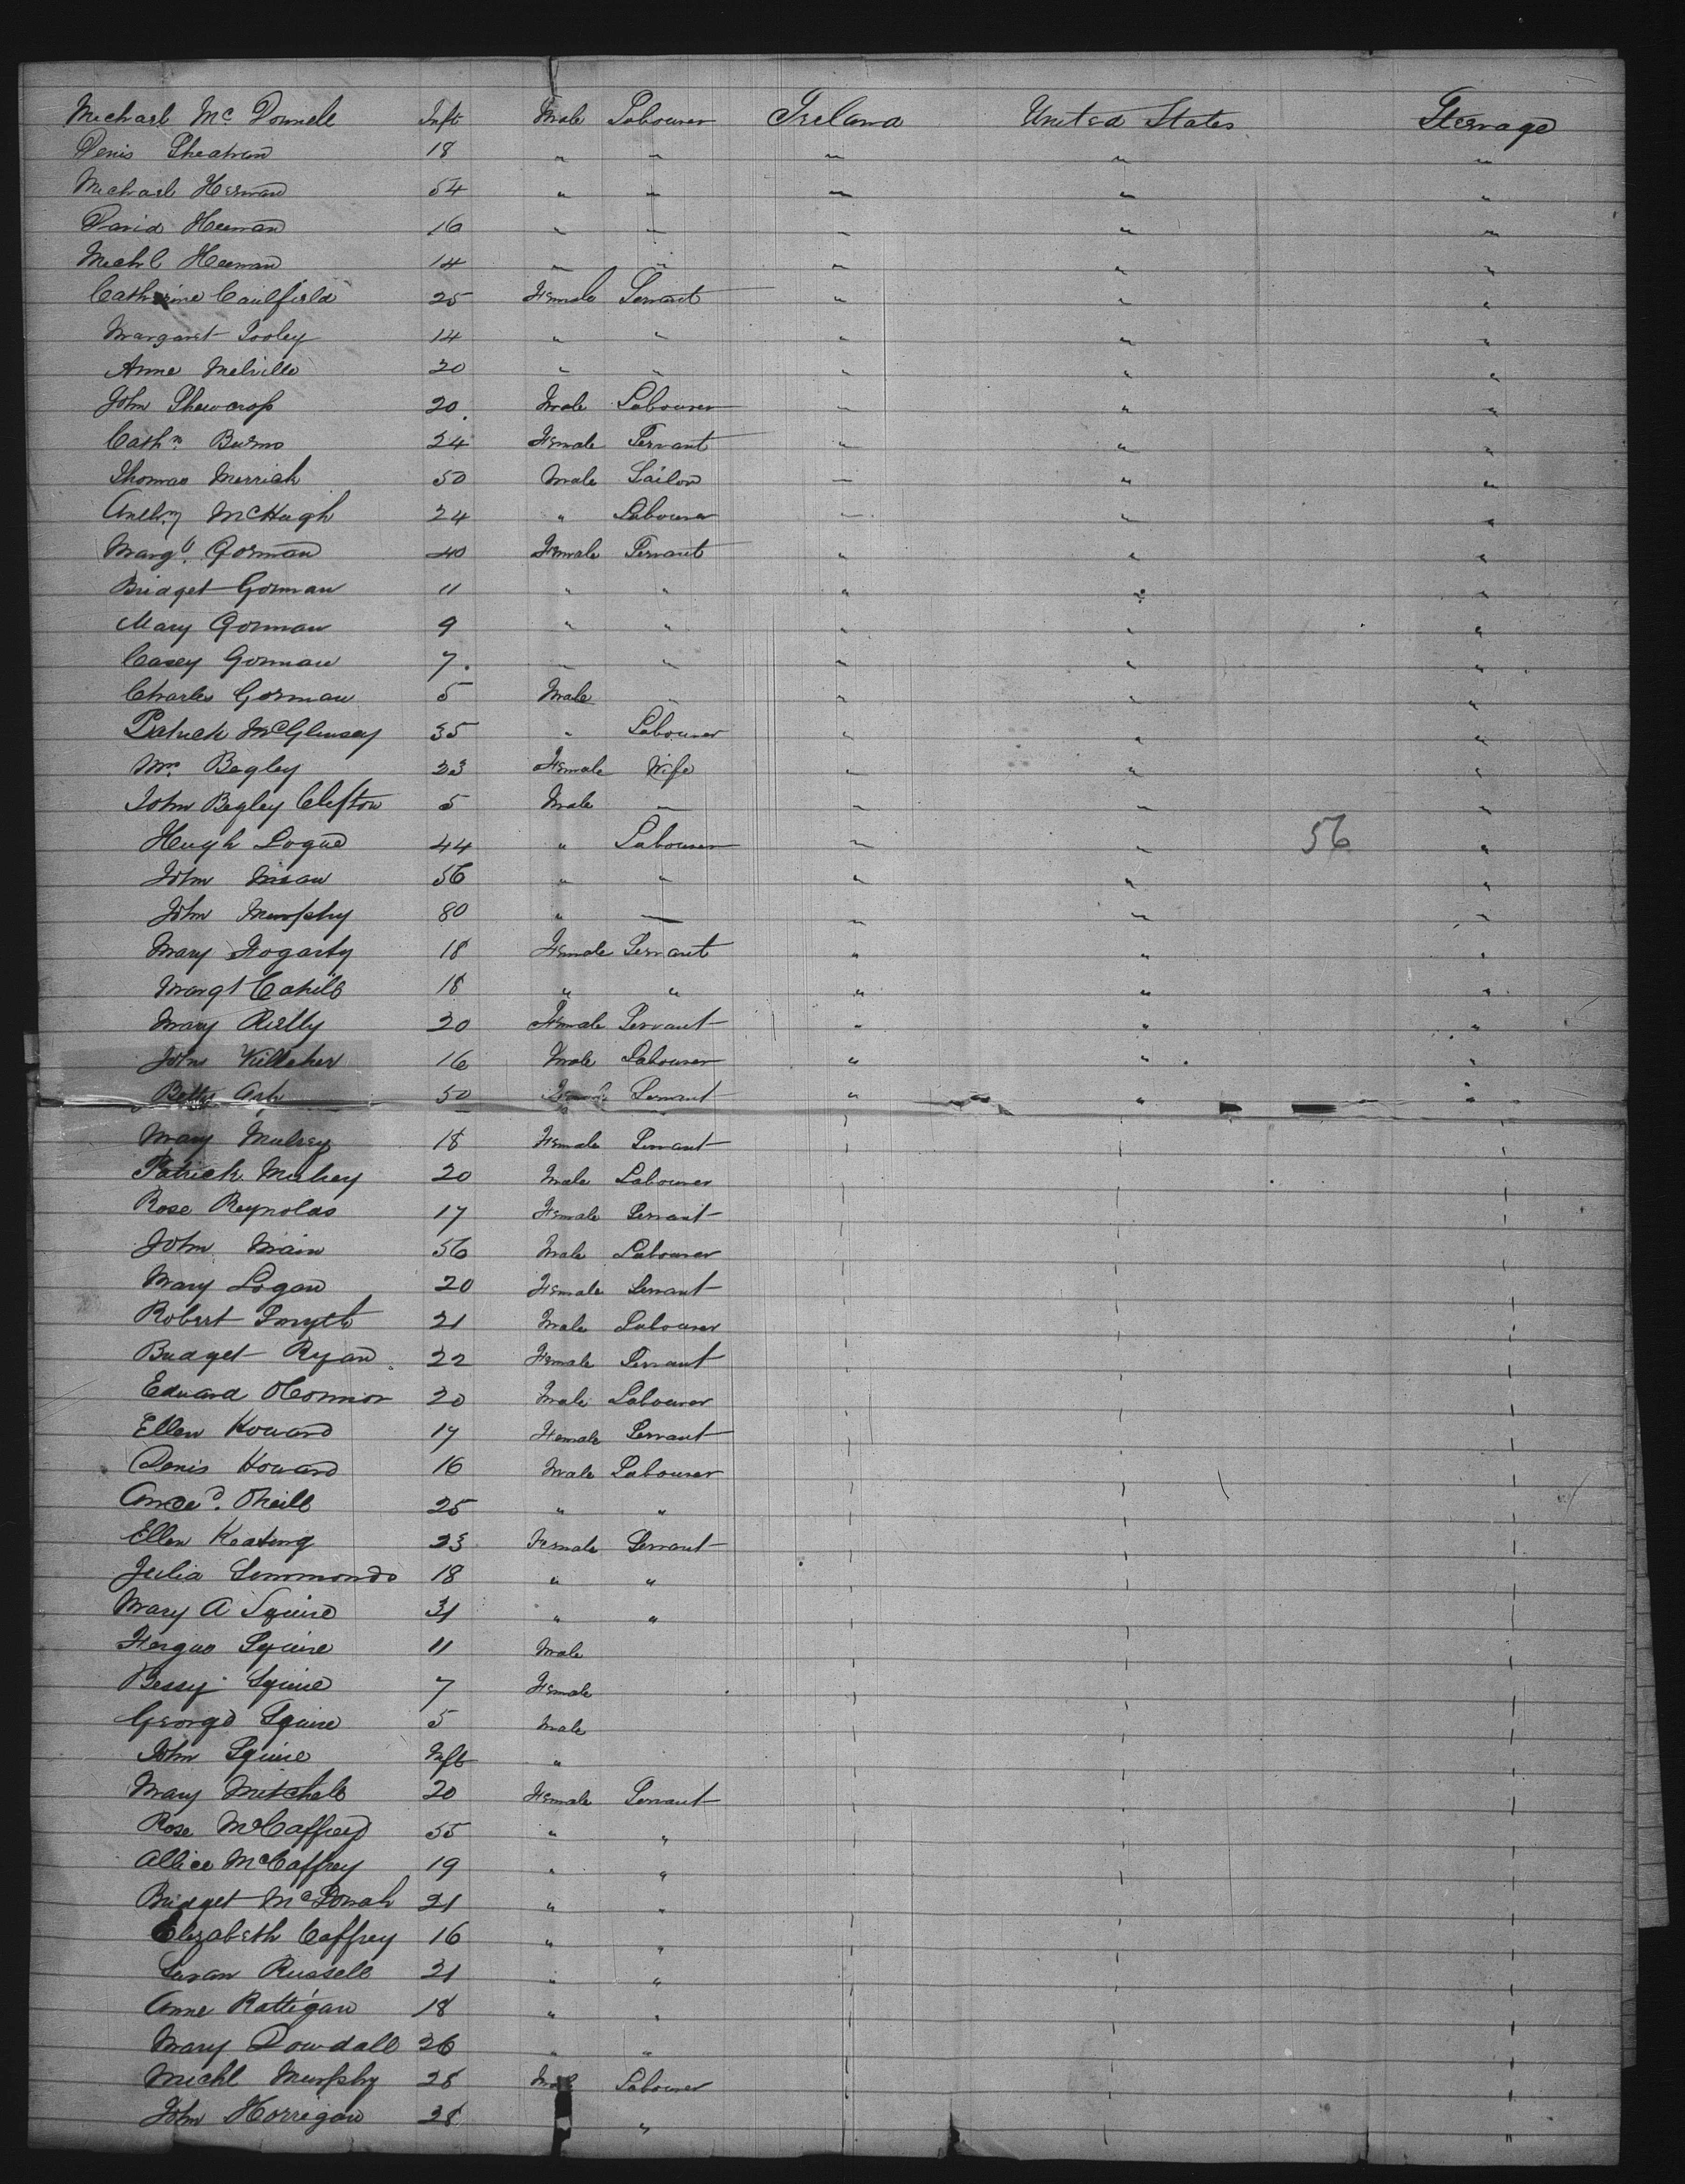 Michael Mc Donnell Inft Male Labourer Ireland United States Steerage
Denis Sheahan 18 " " " " "
Michael Heenan 54 " " " " "
David Heenan 16 " " " " "
Michl Heenan 14 " " " " "
Catherine Caulfield 25 Female Servant " " "
Margaret Dooley 14 " " " " "
Anne Melville 20 " " " " "
John Shewcross 20 Male Labourer " " "
Cathn Burns 24 Female Servant " " "
Thomas Merrick 50 Male Sailor " " "
Anthny McHugh 24 " Labourer " " "
Margt Gorman 40 Female Servant " " "
Bridget Gorman 11 " " " " "
Mary Gorman 9 " " " " "
Casey Gorman 7 " " " " "
Charles Gorman 5 Male " " " "
Patrick McGlinsey 35 " Labourer " " "
Mrs Begley 23 Female Wife " " "
John Begley Clifton 5 Male — " " "
Hugh Logue 44 " Labourer " " 56 "
John 56 " " " " "
John Murphy 80 " — " " "
Mary Fogarty 18 Female Servant " " "
Margt Cahill 18 " " " " "
Mary Rielly 20 Female Servant " " "
John Killeher 16 Male Labourer " " "
Betty Ash 50 Female Servant " " "
Mary Mulvey 18 Female Servant " " "
Patrick Mulvey 20 Male Labourer " " "
Rose Reynolds 17 Female Servant " " "
John Main 56 Male Labourer " " "
Mary Logan 20 Female Servant " " "
Robert Smyth 21 Male Labourer " " "
Bridget Ryan 22 Female Servant " " "
Edward OConnor 20 Male Labourer " " "
Ellen Howard 17 Female Servant " " "
Denis Howard 16 Male Labourer " " "
Oneill 25 " " " " "
Ellen Keating 23 Female Servant " " "
Julia Simmonds 18 " " " " "
Mary A Squire 31 " " " " "
Fergus Squire 11 Male " " "
Bessy Squire 7 Female " " "
George Squire 5 Male " " "
John Squire Inft " " " "
Mary Mitchell 20 Female Servant " " "
Rose McCaffrey 55 " " " " "
Allice McCaffrey 19 " " " " "
Bridget McDonah 21 " " " " "
Elizabeth Caffrey 16 " " " " "
Susan Russell 21 " " " " "
Anne Rattigan 18 " " " " "
Mary Dowdall 26 " " " " "
Michl Murphy 25 Male Labourer " " "
John Horrigan 28 " " " "